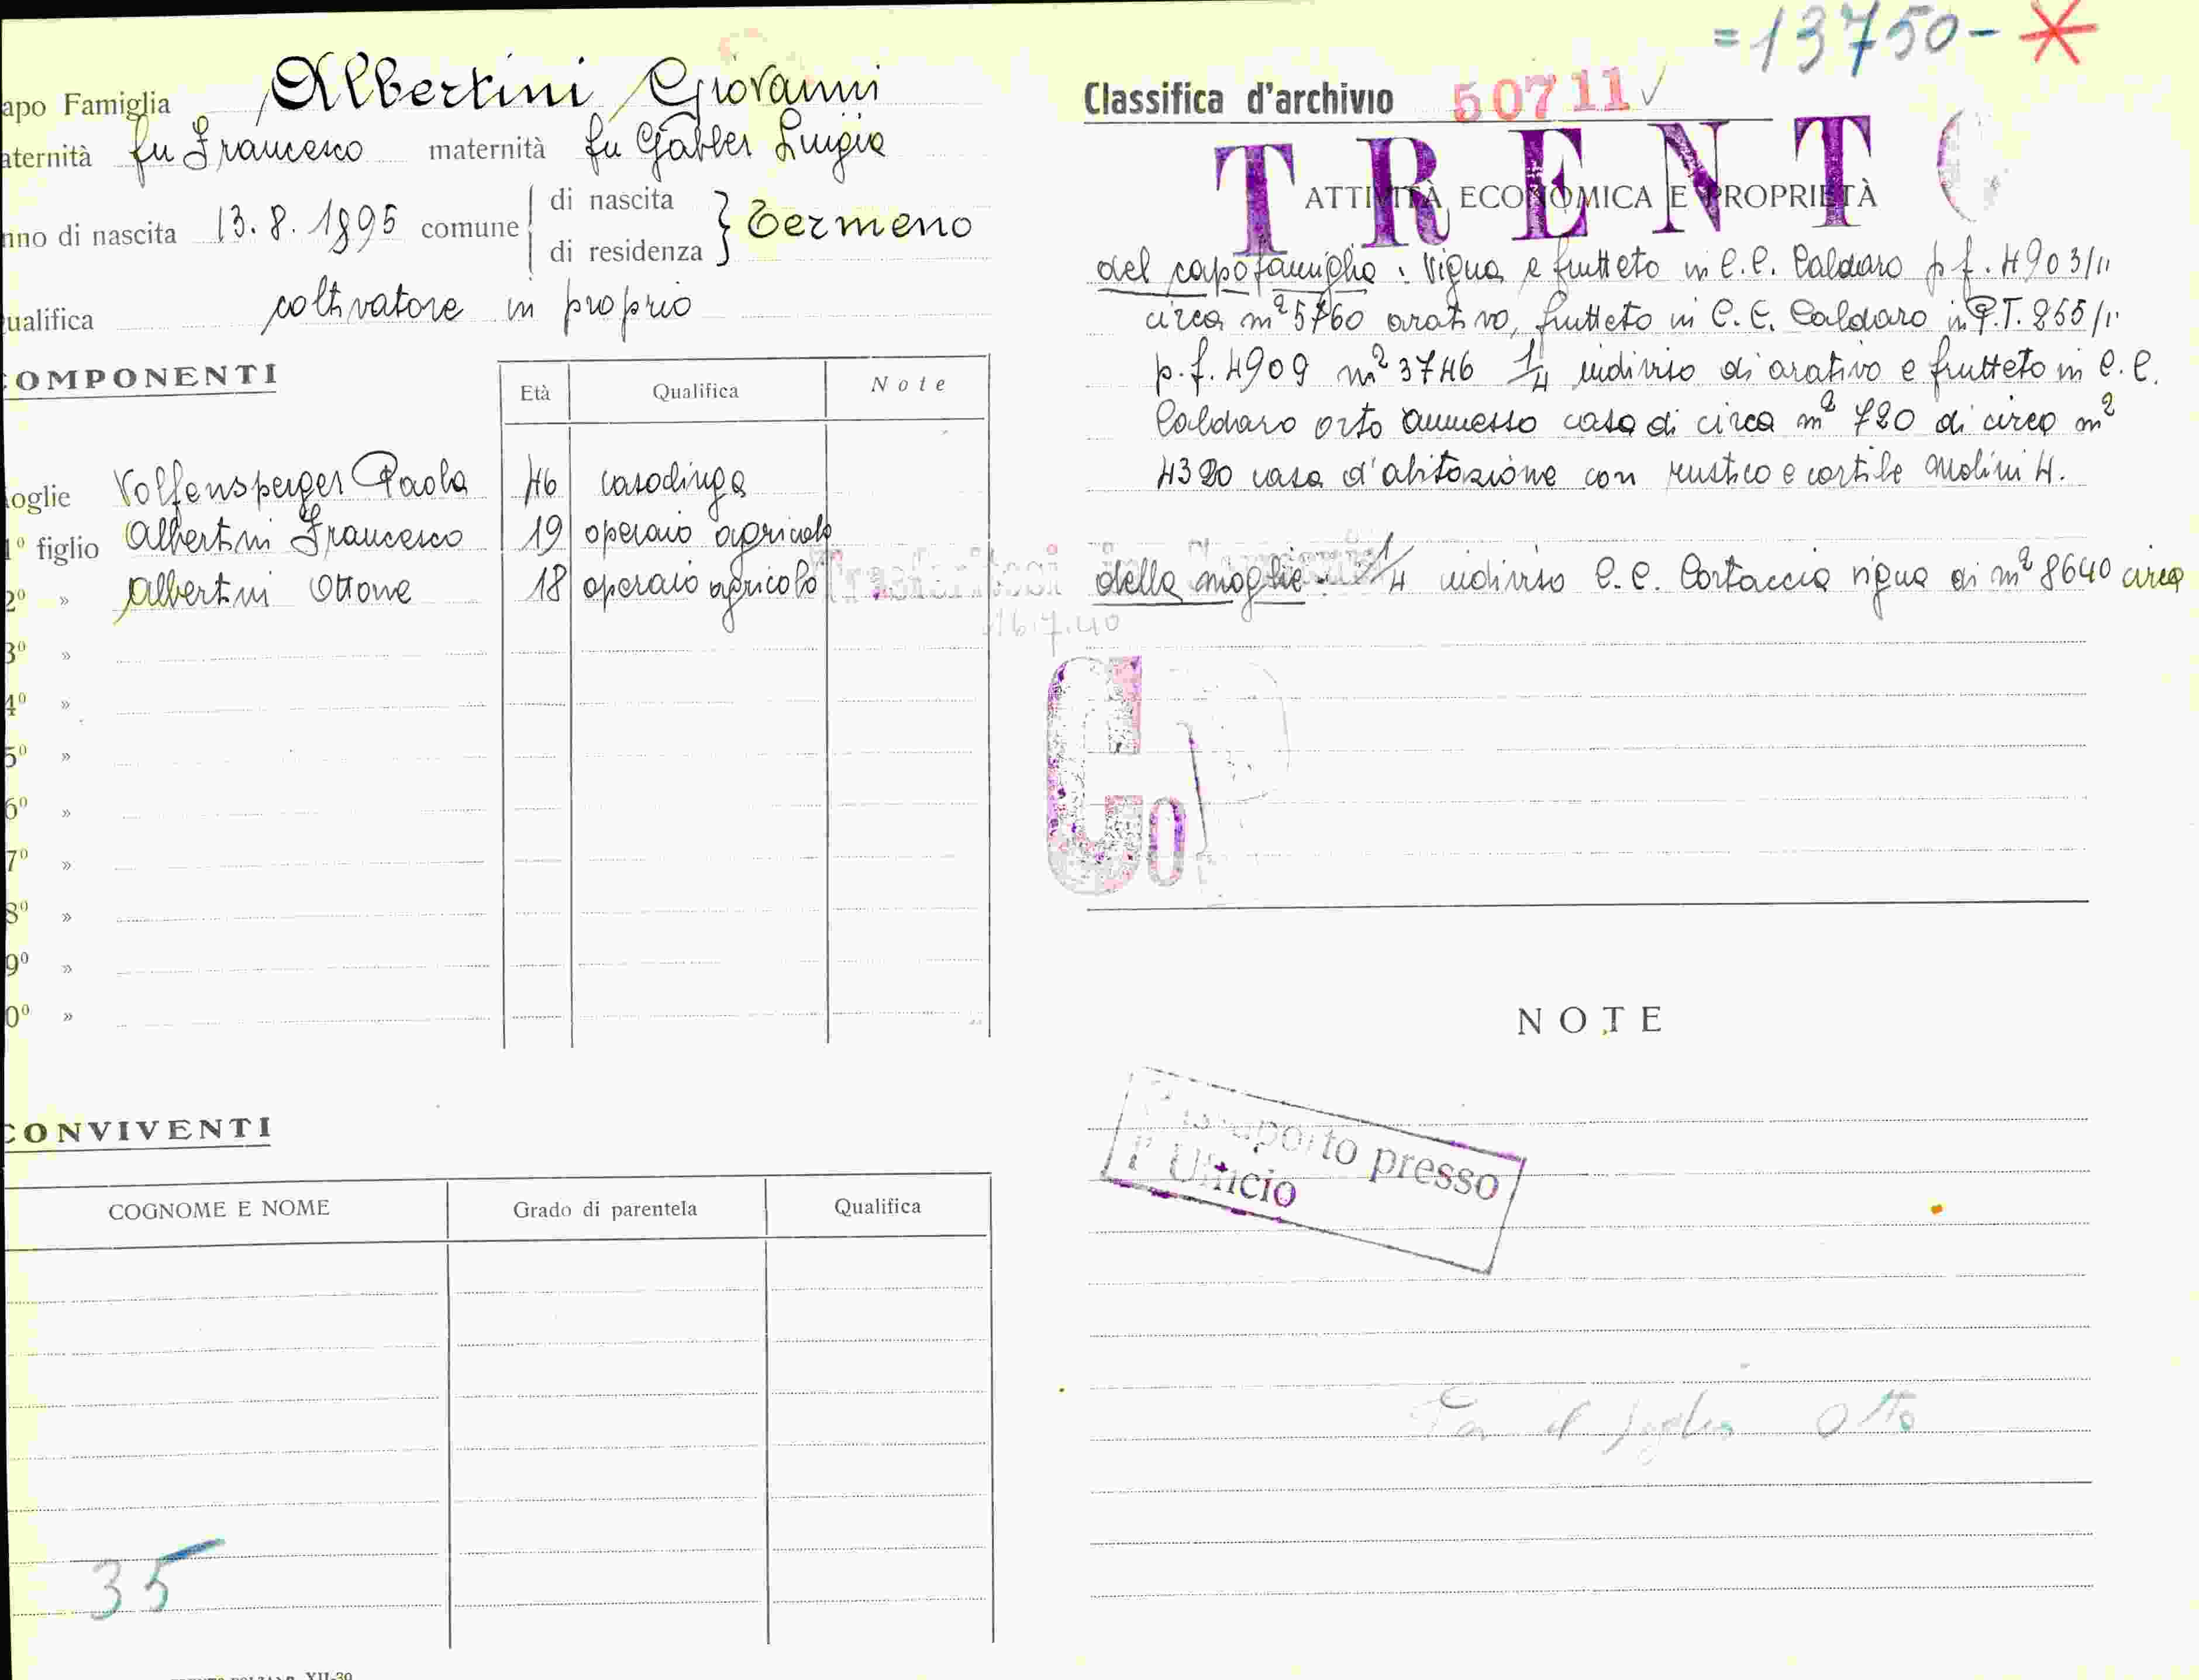 =13750-
apo Famiglia Albertini Giovanni
aternità fu Francesco maternità fu Gabber Luigia
nno di nascita 13.8.1895 comune di nascita di residenza Termeno
ualifica coltivatore in proprio
OMPONENTI
Età Qualifica Note
oglie Volfensperger Paola 46 casalinga
1º figlio Albertini Francesco 19 operaio agricolo
2º » Albertini Ottone 18 operaio agricolo
3º »
4º »
5º »
6º »
7º »
8º »
9º »
0º »
CONVIVENTI
COGNOME E NOME Grado di parentela Qualifica
35
XII-39
Classifica d'archivio 50711
TRENT
ATTIVITÀ ECONOMICA E PROPRIETÀ
del capofamiglia: vigna e frutteto in C.C. Caldaro p f. 4903/11
circa m² 5760 arativo, frutteto in C.C. Caldaro in P.T. 255/11
p.f. 4909 m² 3746 1/4 indiviso di arativo e frutteto in C.C.
Caldaro orto annesso casa di circa m² 720 di circa m²
4320 casa d'abitazione con rustico e cortile Molini 4.
della moglie: 1/4 indiviso C.C. Cortaccia vigna di m² 8640 circa
16.7.40
NOTE
presso
l'Ufficio
Otto